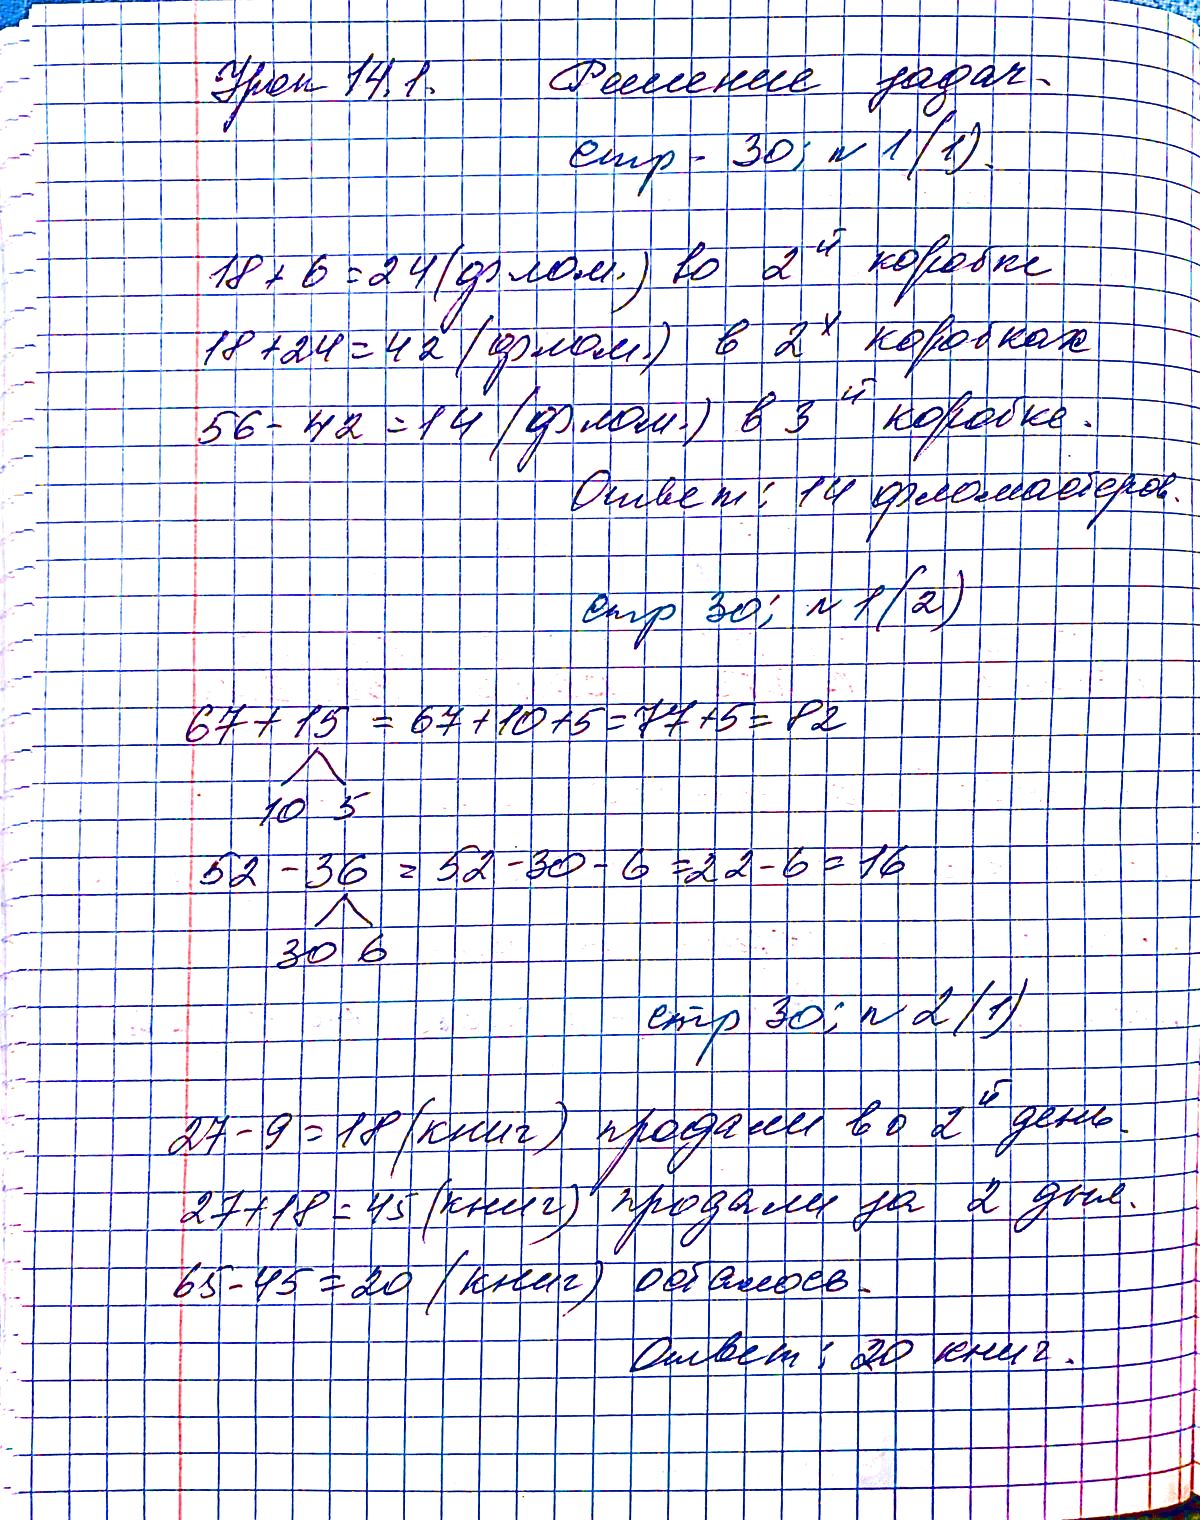 Урок 14.1. Решение задач.
стр - 30; № 1(1).
18 + 6 = 24 (флом.) во 2й коробке
18 + 24 = 42 (флом.) в 2х коробках
56 - 42 = 14 (флом.) в 3й коробке.
Ответ: 14 фломастеров.
стр 30; № 1(2)
67 + 15 = 67 + 10 + 5 = 77 + 5 = 82
10 5
52 - 36 = 52 - 30 - 6 = 22 - 6 = 16
30 6
стр 30; № 2(1)
27 - 9 = 18 (книг) продали во 2й день.
27 + 18 = 45 (книг) продали за 2 дня.
65 - 45 = 20 (книг) осталось.
Ответ: 20 книг.